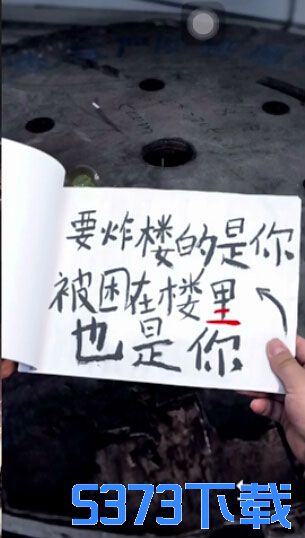 要炸楼的是你
被困在楼里
也是你
S373下载